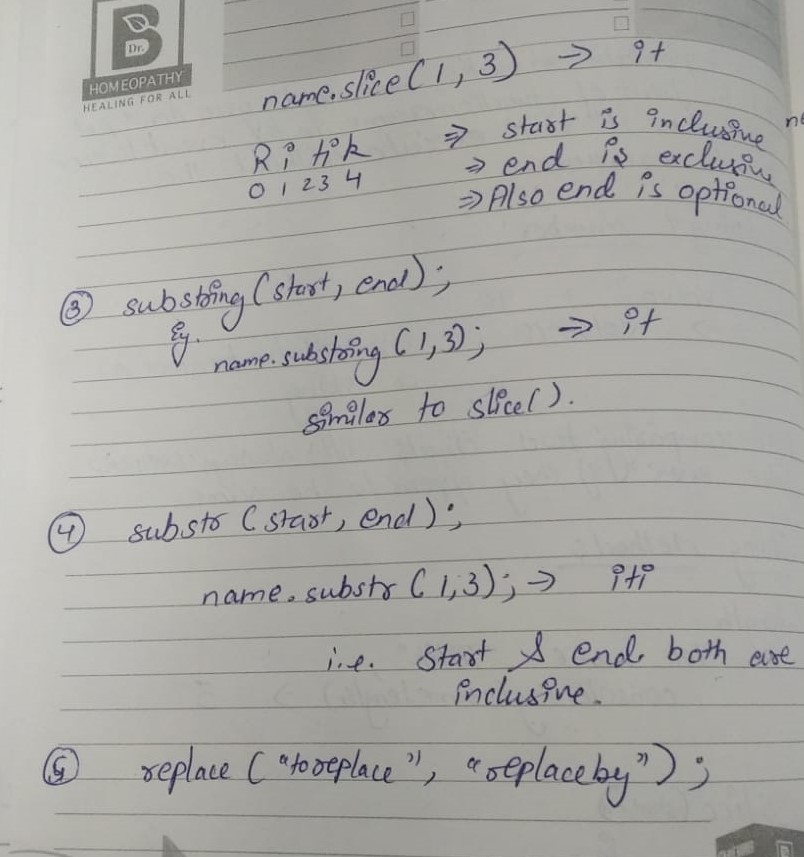 B
Dr.
HOMEOPATHY
HEALING FOR ALL
name.slice(1, 3) ⇒ it
Ritik ⇒ start is inclusive
0 1 2 3 4 ⇒ end is exclusive
⇒ Also end is optional
③ substring (start, end);
Eg.
name.substring (1,3); ⇒ it
similar to slice().
④ substr (start, end);
name.substr (1,3); → iti
i.e. Start & end both are
inclusive.
⑤ replace ("toreplace", "replaceby");